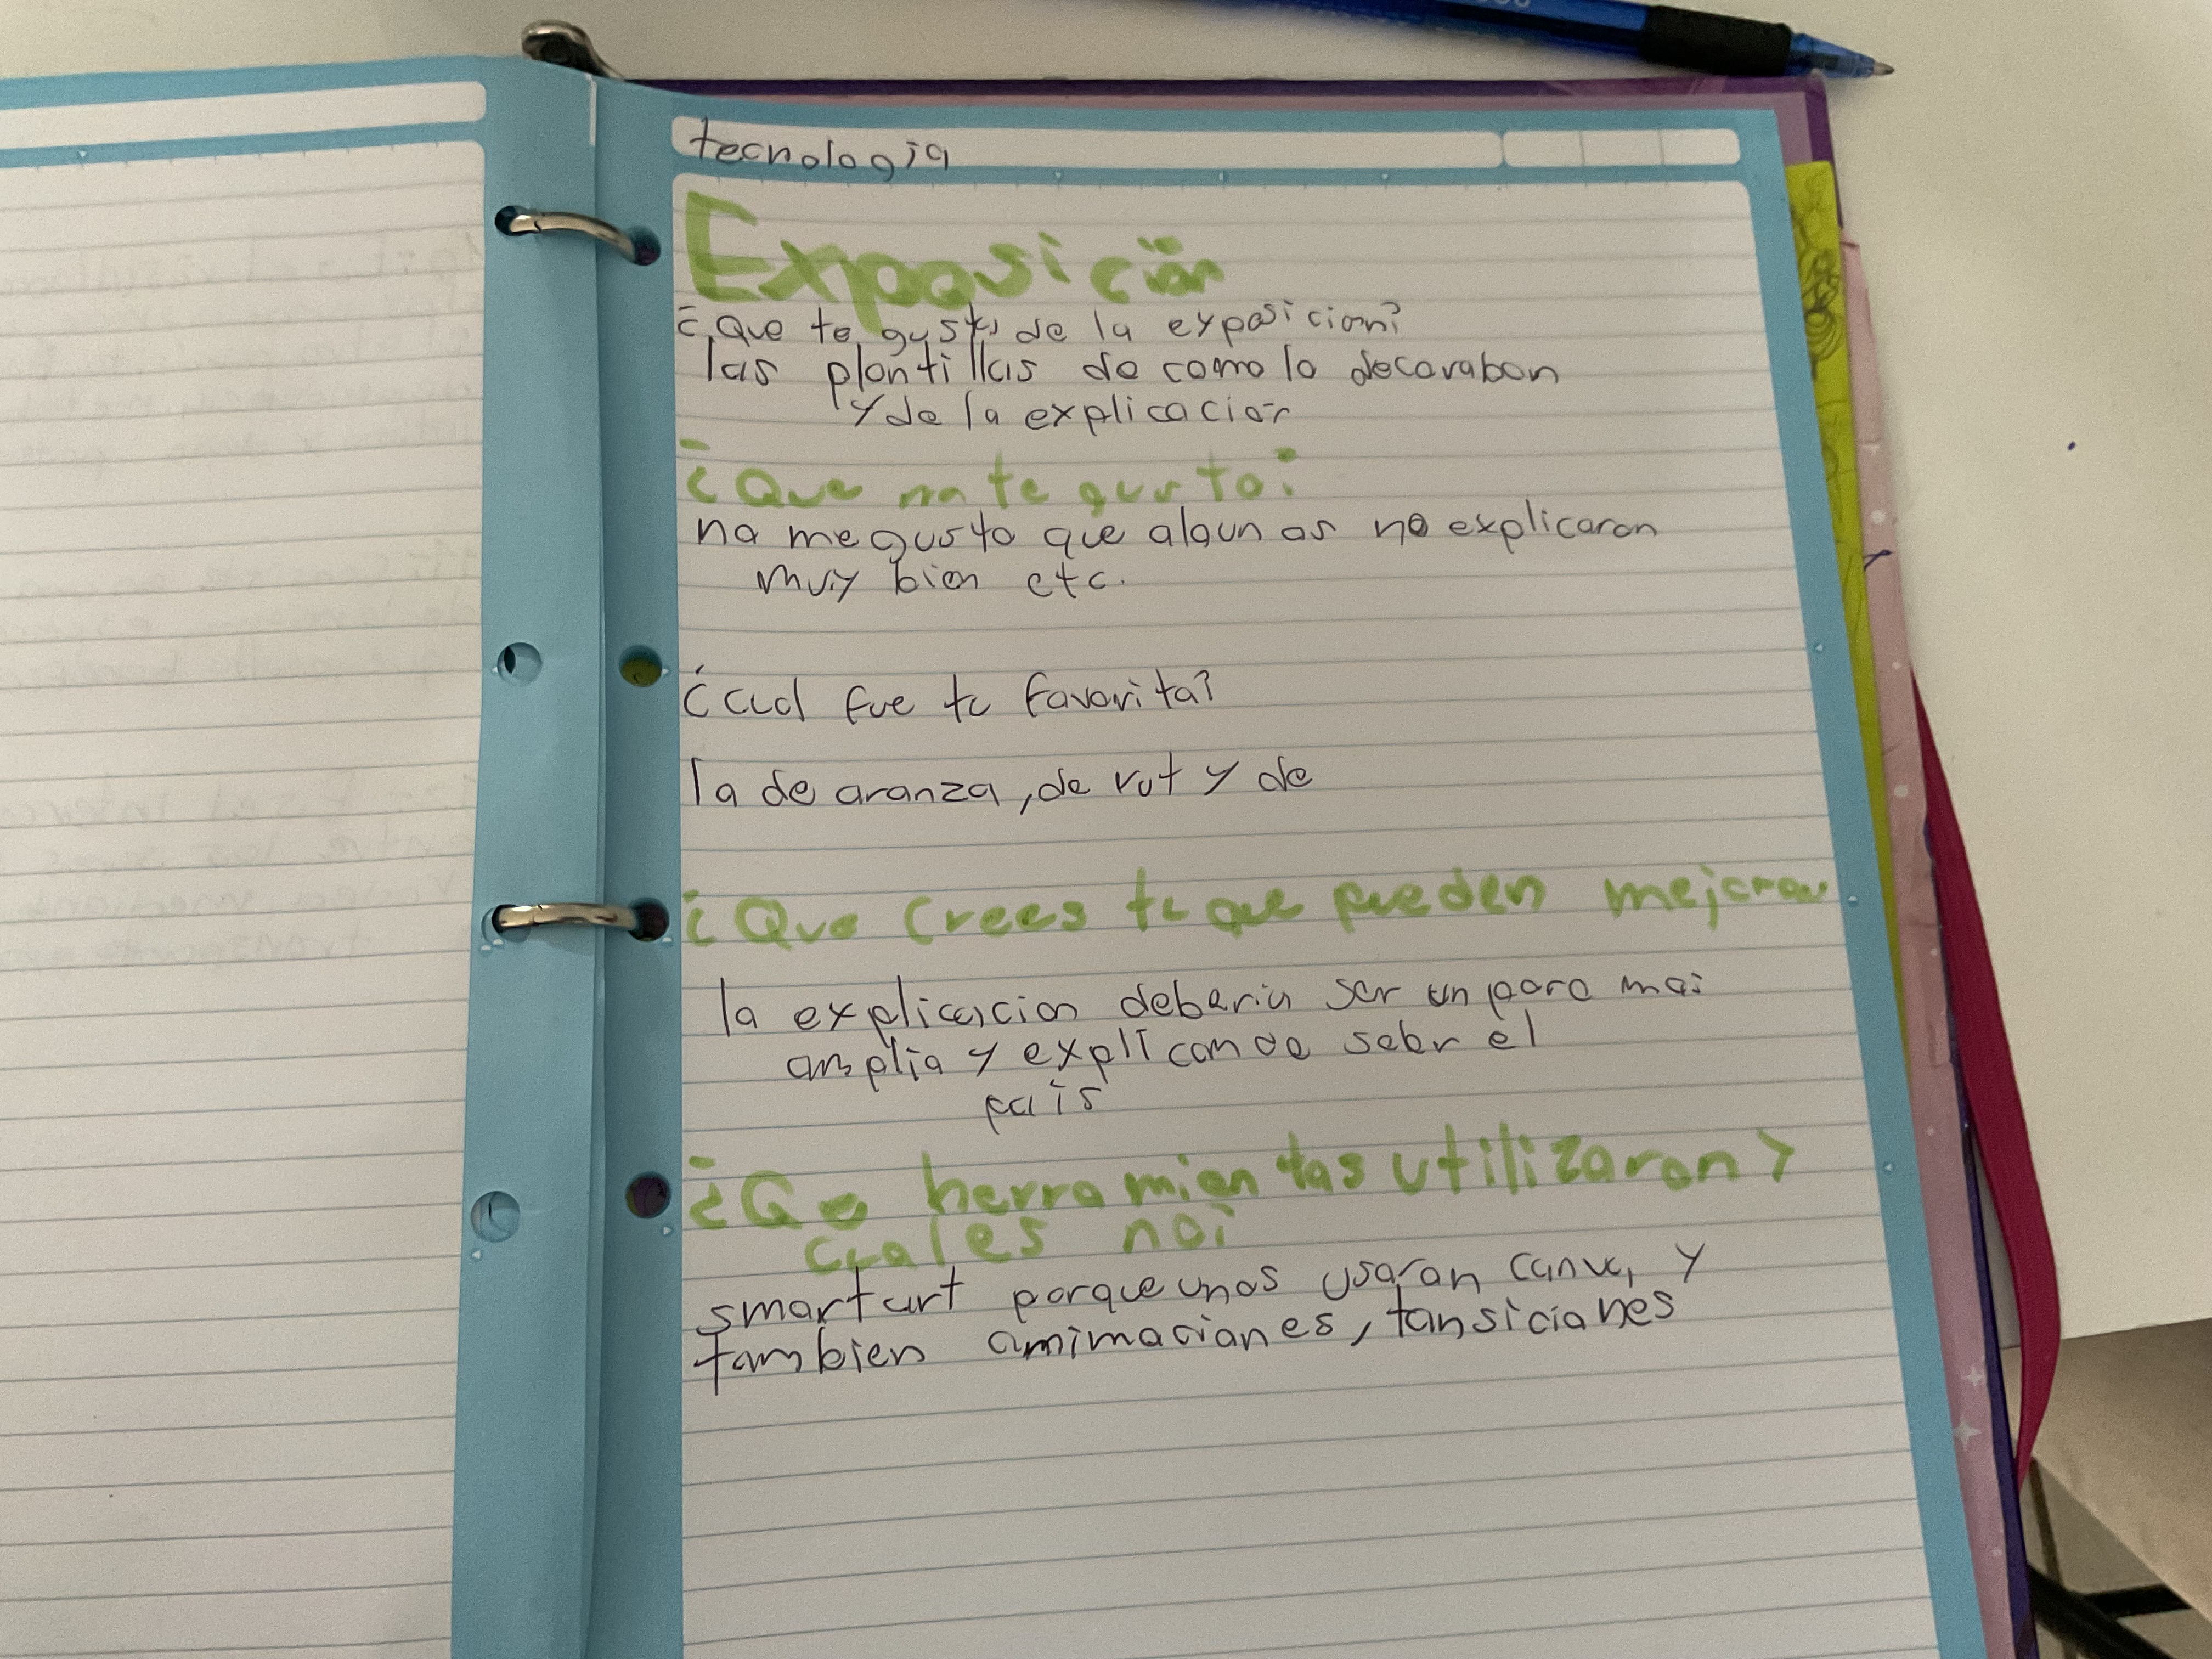 tecnologia
Exposición
¿Que te gusto de la exposicion?
las plantillas de como lo decoraban
y de la explicacion
¿Que no te gusto?
no me gusto que algunos no explicaron
muy bien etc.
¿cual fue tu favorita?
la de aranza, de rut y de
¿Que crees tu que pueden mejorar
la explicacion deberia ser un poco mas
amplia y explicando sobr el
pais
¿Que herramientas utilizaron?
cuales no?
smartart porque unos usaron canva, y
tambien animaciones, tansiciones